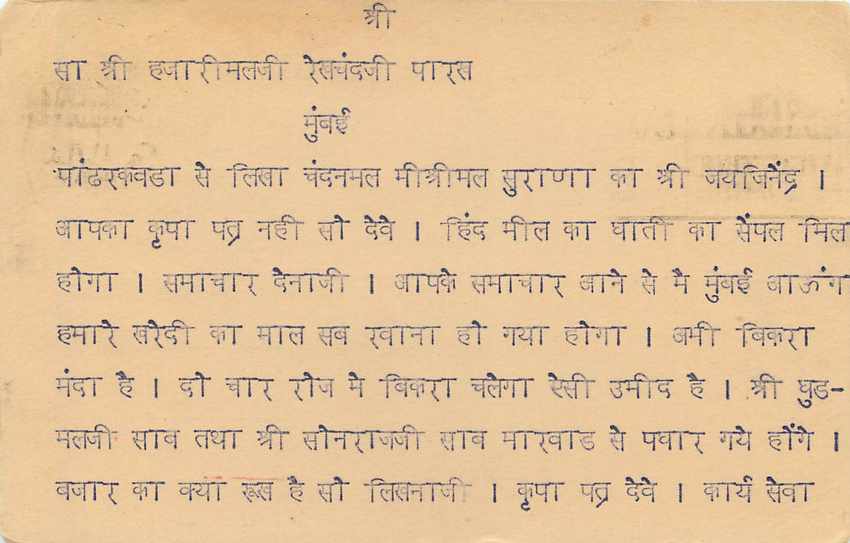 श्री
सा श्री हजारीमलजी रेखचंदजी पारख
मुंबई
पांढरकवडा से लिखा चंदनमल मीश्रीमल सुराणा का श्री जयजिनेंद्र ।
आपका कृपा पत्र नही सो देवे । हिंद मील का घाती का सेंपल मिल
होगा । समाचार देनाजी । आपके समाचार आने से मै मुंबई आऊंग
हमारे खरेदी का माल सब रवाना हो गया होगा । अभी विकरा
मंदा है । दो चार रोज मे विकरा चलेगा ऐसी उमीद है । श्री घुड-
मलजी साब तथा श्री सोनराजजी साब मारवाड से पधार गये होंगे ।
बजार का क्या रूख है सो लिखनाजी । कृपा पत्र देवे । कार्य सेवा